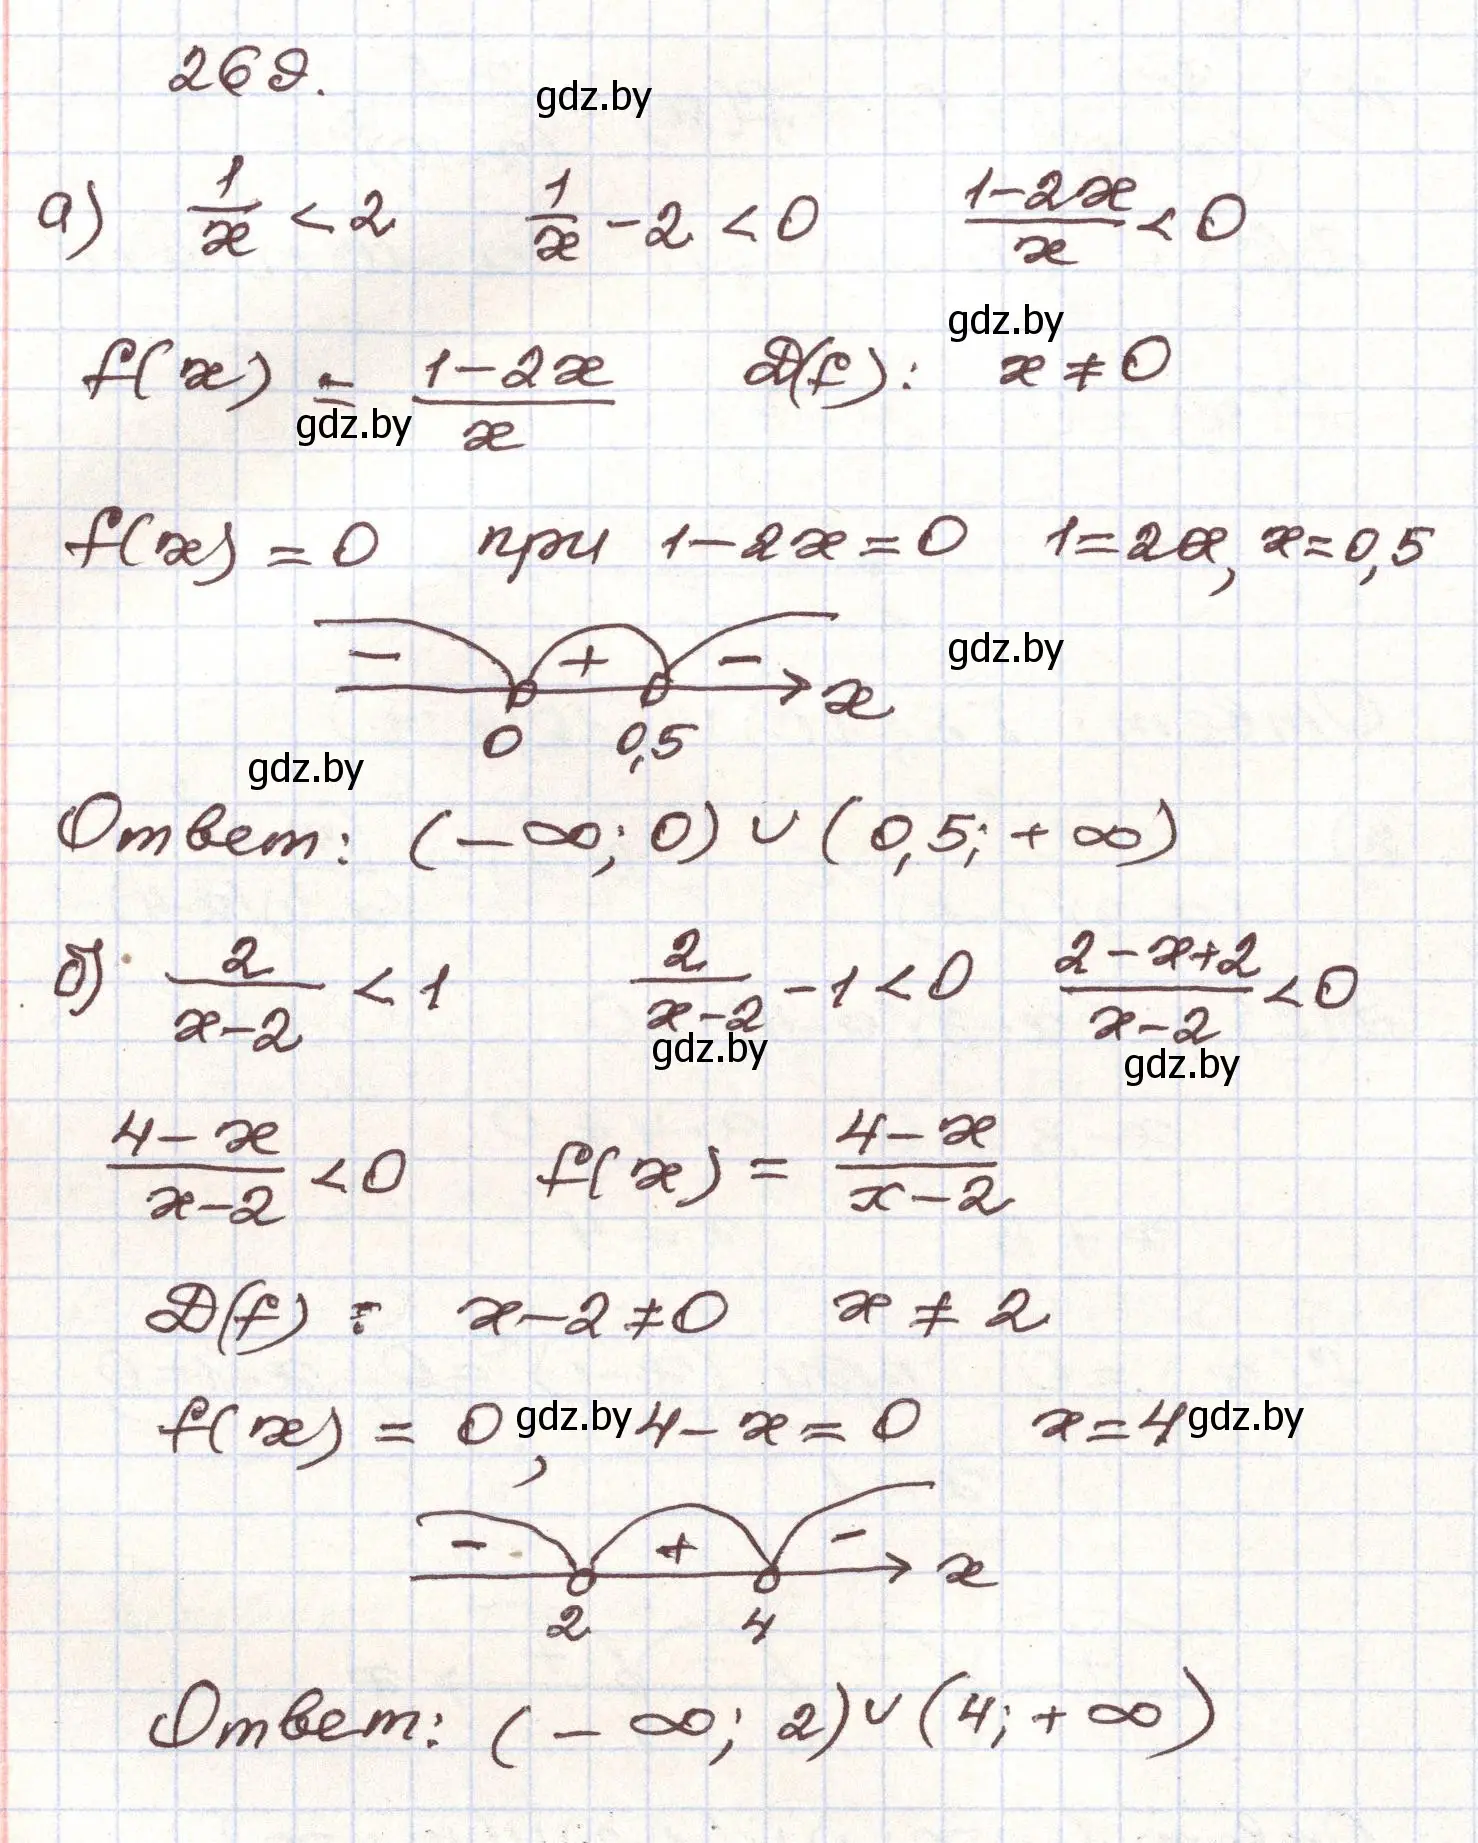 269.
gdz.by
а) 1/x < 2   1/x - 2 < 0   (1-2x)/x < 0
gdz.by
f(x) = (1-2x)/x   D(f): x ≠ 0
gdz.by
f(x) = 0 при 1-2x = 0   1=2x, x=0,5
- + - x
gdz.by
0 0,5
gdz.by
Ответ: (-∞; 0) ∪ (0,5; +∞)
б) 2/(x-2) < 1   2/(x-2) - 1 < 0   (2-x+2)/(x-2) < 0
gdz.by
gdz.by
(4-x)/(x-2) < 0   f(x) = (4-x)/(x-2)
D(f): x-2≠0   x ≠ 2
f(x) = 0, gdz.by 4-x=0   x=4 gdz.by
- + - x
2 4
Ответ: (-∞; 2) ∪ (4; +∞)